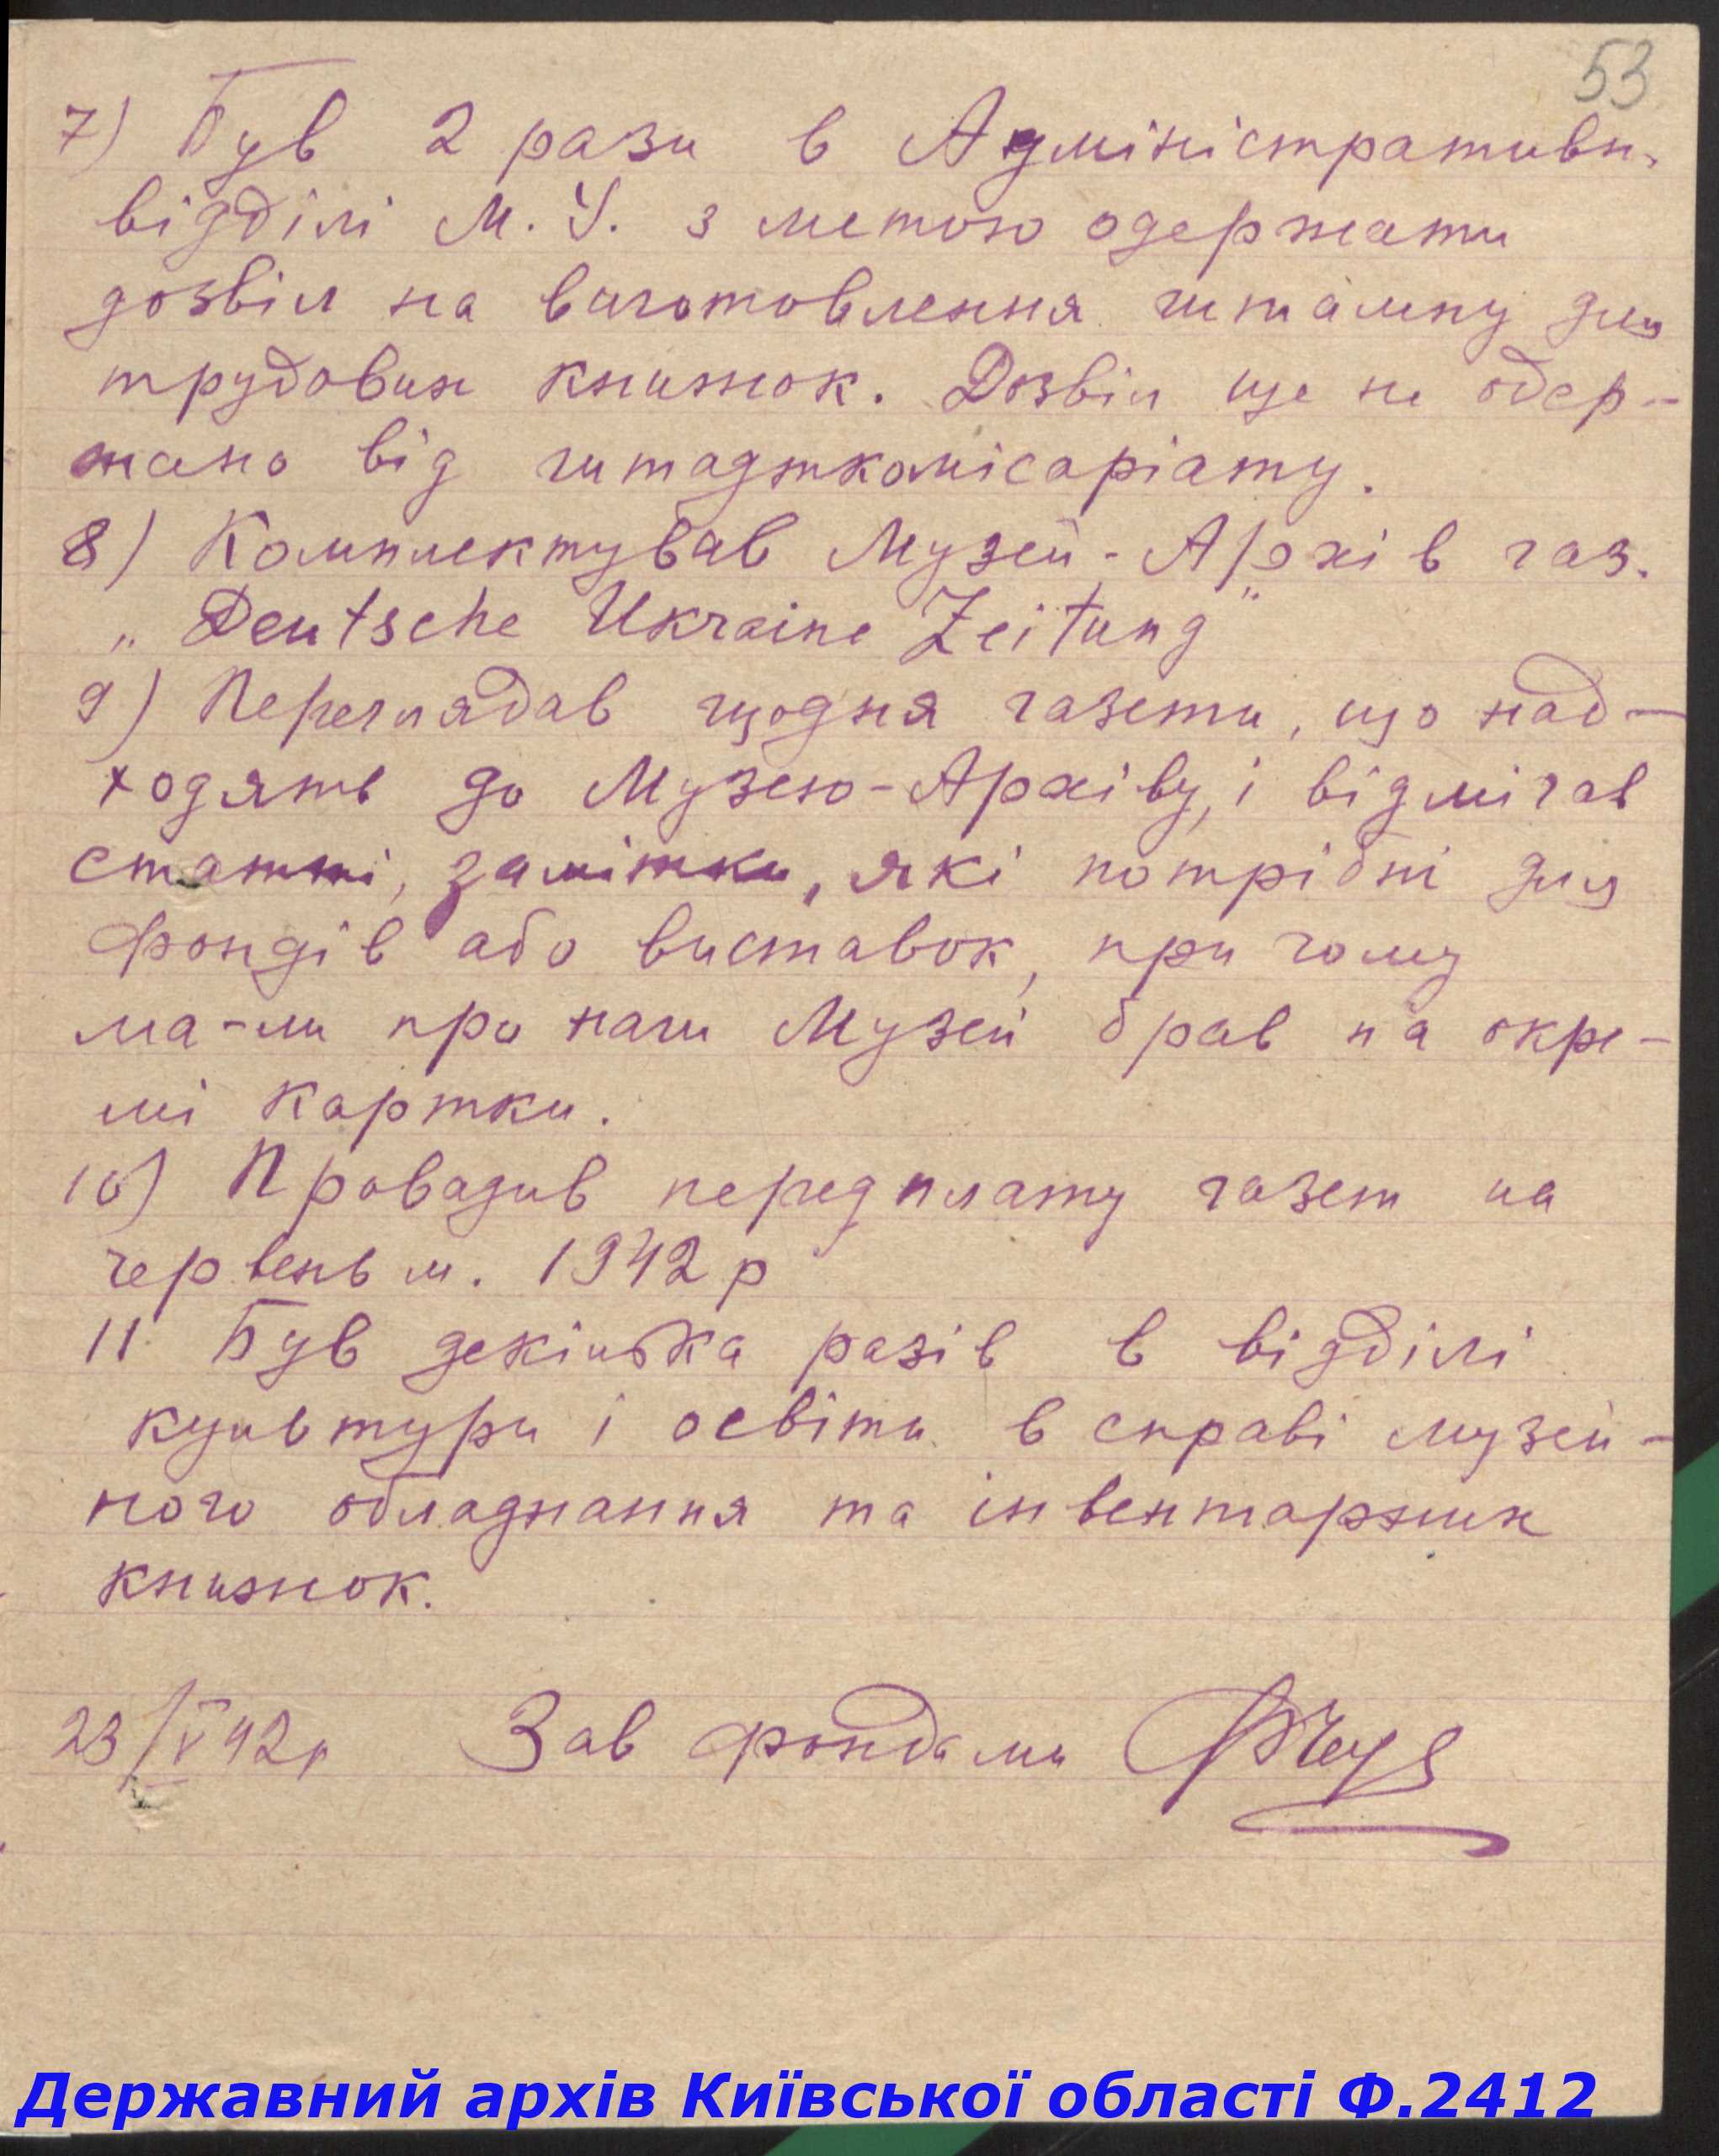 53
7) Був 2 рази в Адміністративн.
відділі М. У. з метою одержати
дозвіл на виготовлення штампу для
трудових книжок. Дозвіл ще не одер-
жано від штадткомісаріату.
8) Комплектував Музей-Архів газ.
„Deutsche Ukraine Zeitung"
9) Переглядав щодня газети, що над-
ходять до Музею-Архіву, і відмічав
статті, замітки, які потрібні для
фондів або виставок, при чому
ма-ли про наш Музей брав на окре-
мі картки.
10) Провадив передплату газет на
червень м. 1942 р
11 Був декілька разів в відділі
культури і освіти в справі музей-
ного обладнання та інвентарних
книжок.
23/V 42р Зав фондами
Державний архів Київської області Ф.2412